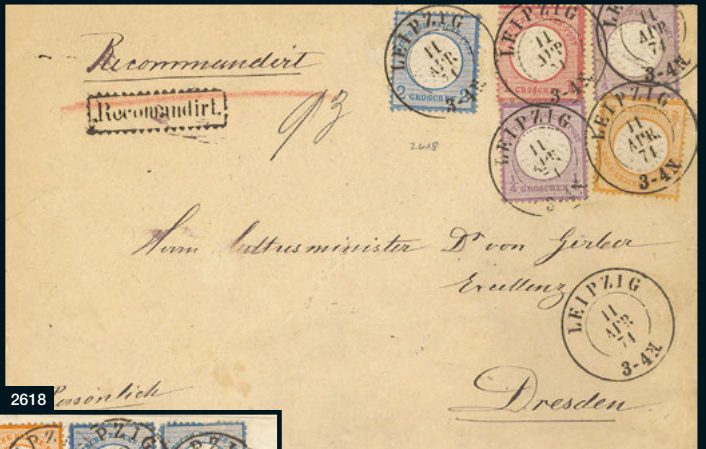 Recommandirt
Recomandirt.
93
2618
LEIPZIG
11
APR
74
3-4N
GROSCHEN
LEIPZIG
11
APR
74
3-4N
GROSCHEN
LEIPZIG
11
APR
74
3-4N
LEIPZIG
11
APR
74
3-4N
1/4 GROSCHEN
LEIPZIG
11
APR
74
3-4N
Herrn Cultusminister Dr von Gerber
Excellenz
LEIPZIG
11
APR
74
3-4N
Persönlich
Dresden
2618